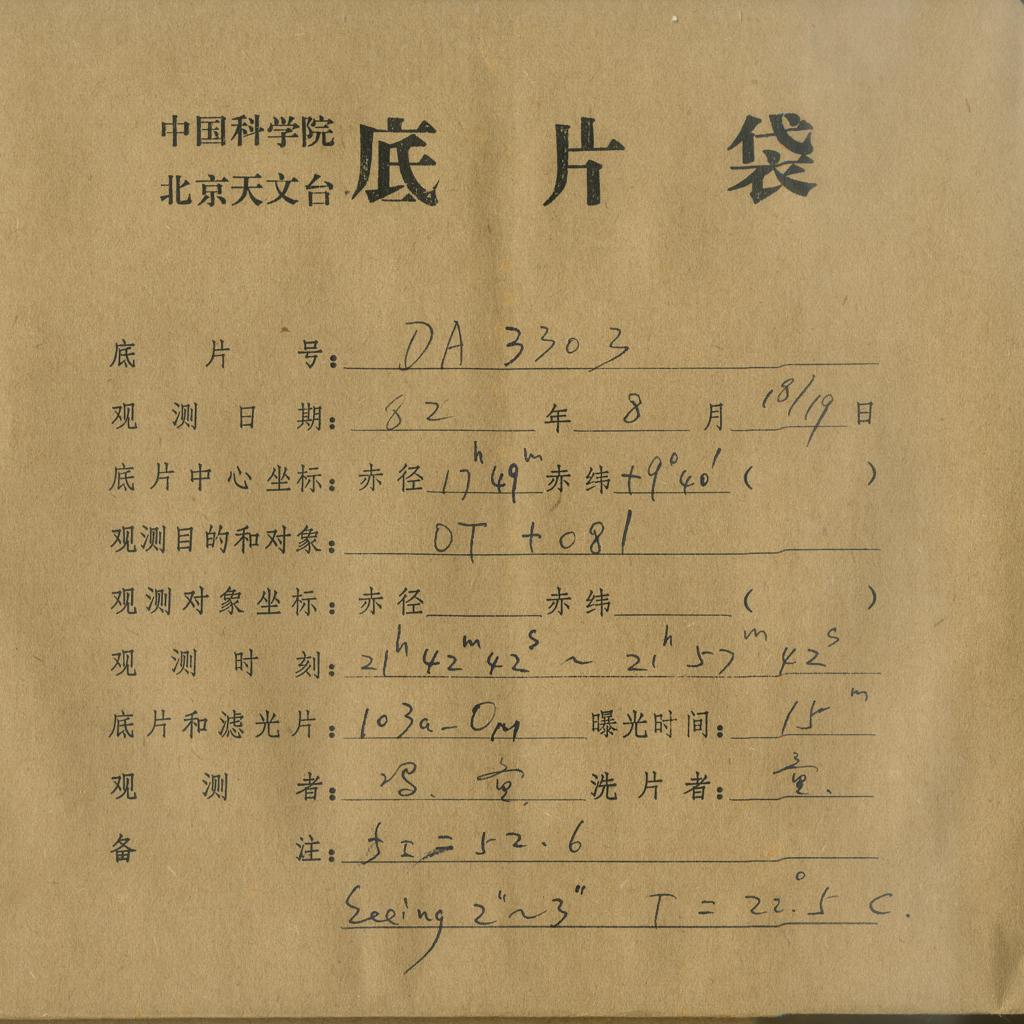 中国科学院
北京天文台
底片袋
底片号: DA 3303
观测日期: 82 年 8 月 18/19 日
底片中心坐标: 赤径 17ʰ49ᵐ 赤纬 +9°40′ ( )
观测目的和对象: OT +081
观测对象坐标: 赤径 赤纬 ( )
观测时刻: 21ʰ42ᵐ42ˢ ~ 21ʰ57ᵐ42ˢ
底片和滤光片: 103a-O 曝光时间: 15ᵐ
观测者: 冯. 童. 洗片者: 童.
备注: = 52.6
Seeing 2″~3″ T = 22°.5 C.